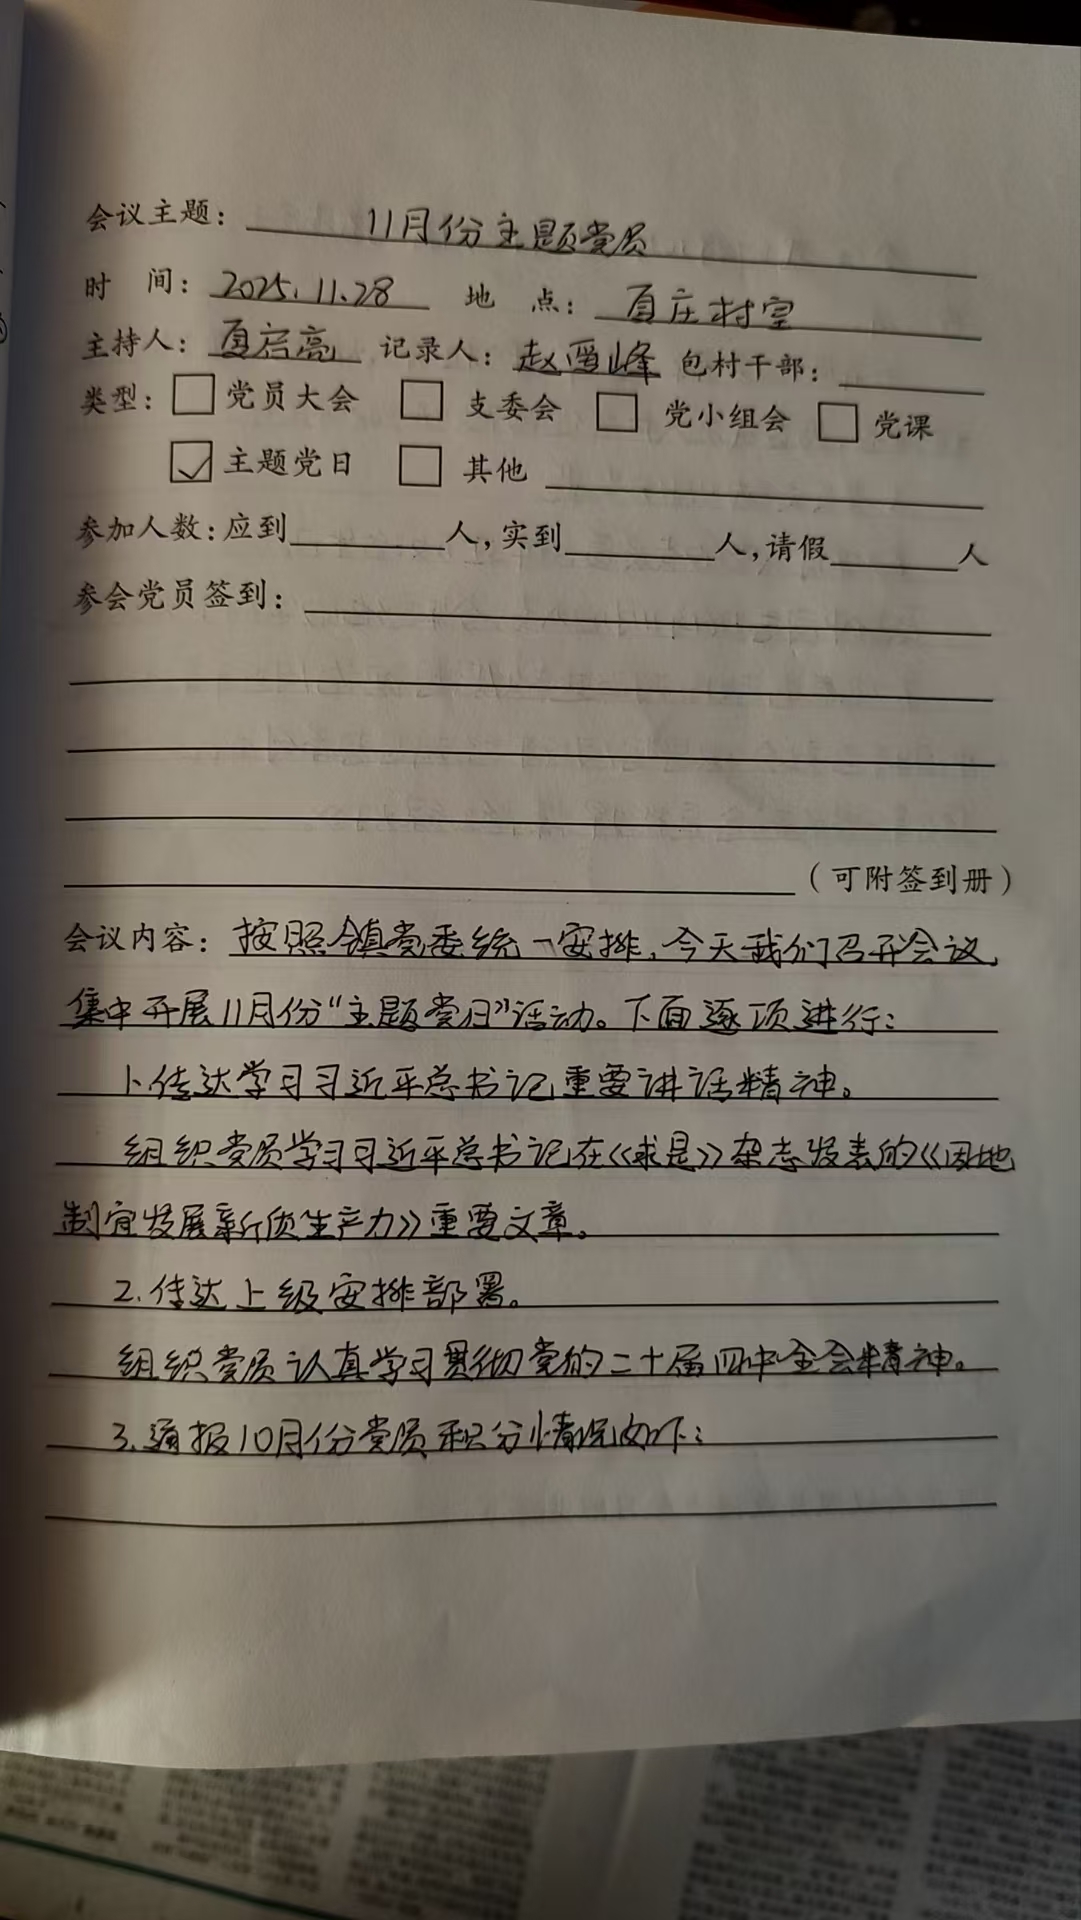 会议主题：11月份主题党员
时 间：2025.11.28 地 点：夏庄村室
主持人：夏启高 记录人：赵雪峰 包村干部：
类型：□党员大会 □支委会 □党小组会 □党课
☑主题党日 □其他
参加人数：应到 人，实到 人，请假 人
参会党员签到：
（可附签到册）
会议内容：按照镇党委统一安排，今天我们召开会议，
集中开展11月份“主题党日”活动。下面逐项进行：
1.传达学习习近平总书记重要讲话精神。
组织党员学习习近平总书记在《求是》杂志发表的《因地
制宜发展新质生产力》重要文章。
2.传达上级安排部署。
组织党员认真学习贯彻党的二十届四中全会精神。
3.通报10月份党员积分情况如下：